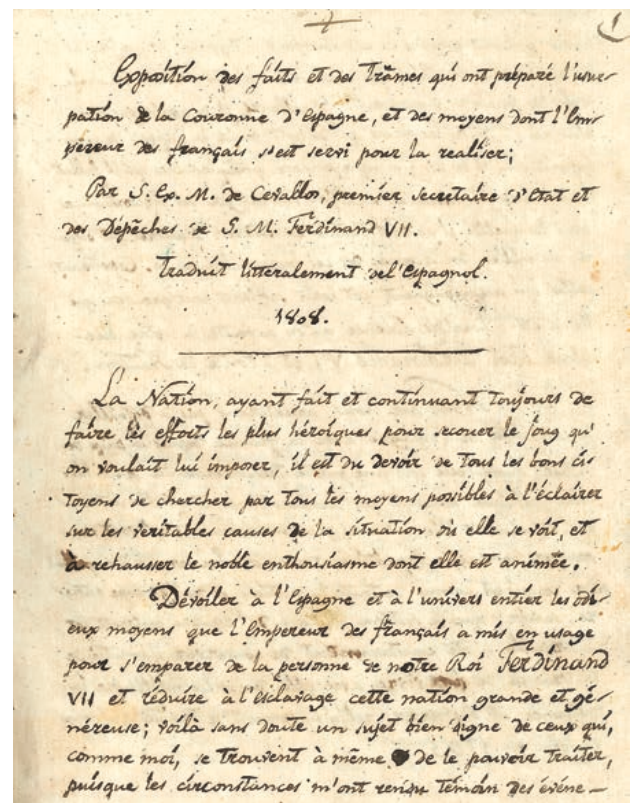 1
Exposition des faits et des trâmes qui ont préparé l'usur-
pation de la Couronne d'Espagne, et des moyens dont l'Em-
pereur des français s'est servi pour la realiser;
Par S. Ex. M. de Cevallos, premier secretaire d'Etat et
des Dépêches de S. M. Ferdinand VII.
Traduit littéralement de l'Espagnol.
1808.
La Nation, ayant fait et continuant toujours de
faire les efforts les plus héroïques pour secouer le joug qu'
on voulait lui imposer, il est du devoir de tous les bons ci-
toyens de chercher par tous les moyens possibles à l'éclairer
sur les veritables causes de la situation où elle se voit, et
à rehausser le noble enthousiasme dont elle est animée.
Dévoiler à l'Espagne et à l'univers entier les odi-
eux moyens que l'Empereur des français a mis en usage
pour s'emparer de la personne de notre Roi Ferdinand
VII et réduire à l'esclavage cette nation grande et gé-
néreuse; voilà sans doute un sujet bien digne de ceux qui,
comme moi, se trouvent à même de le pouvoir traiter,
puisque les circonstances m'ont rendu témoin des événe-